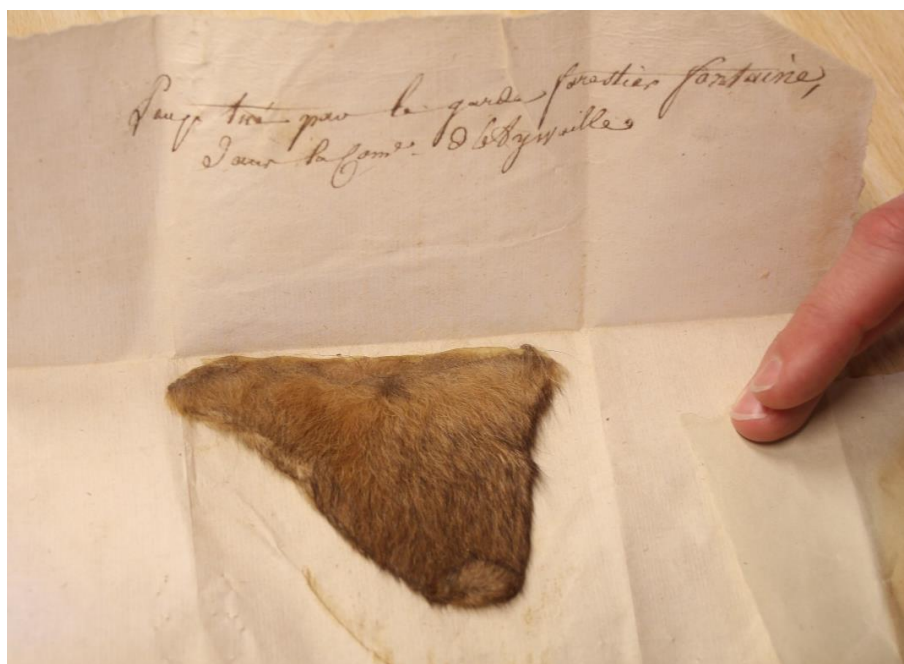 Loup tiré par le garde forestier fontaine,
Dans la Com.e d'Aywaille